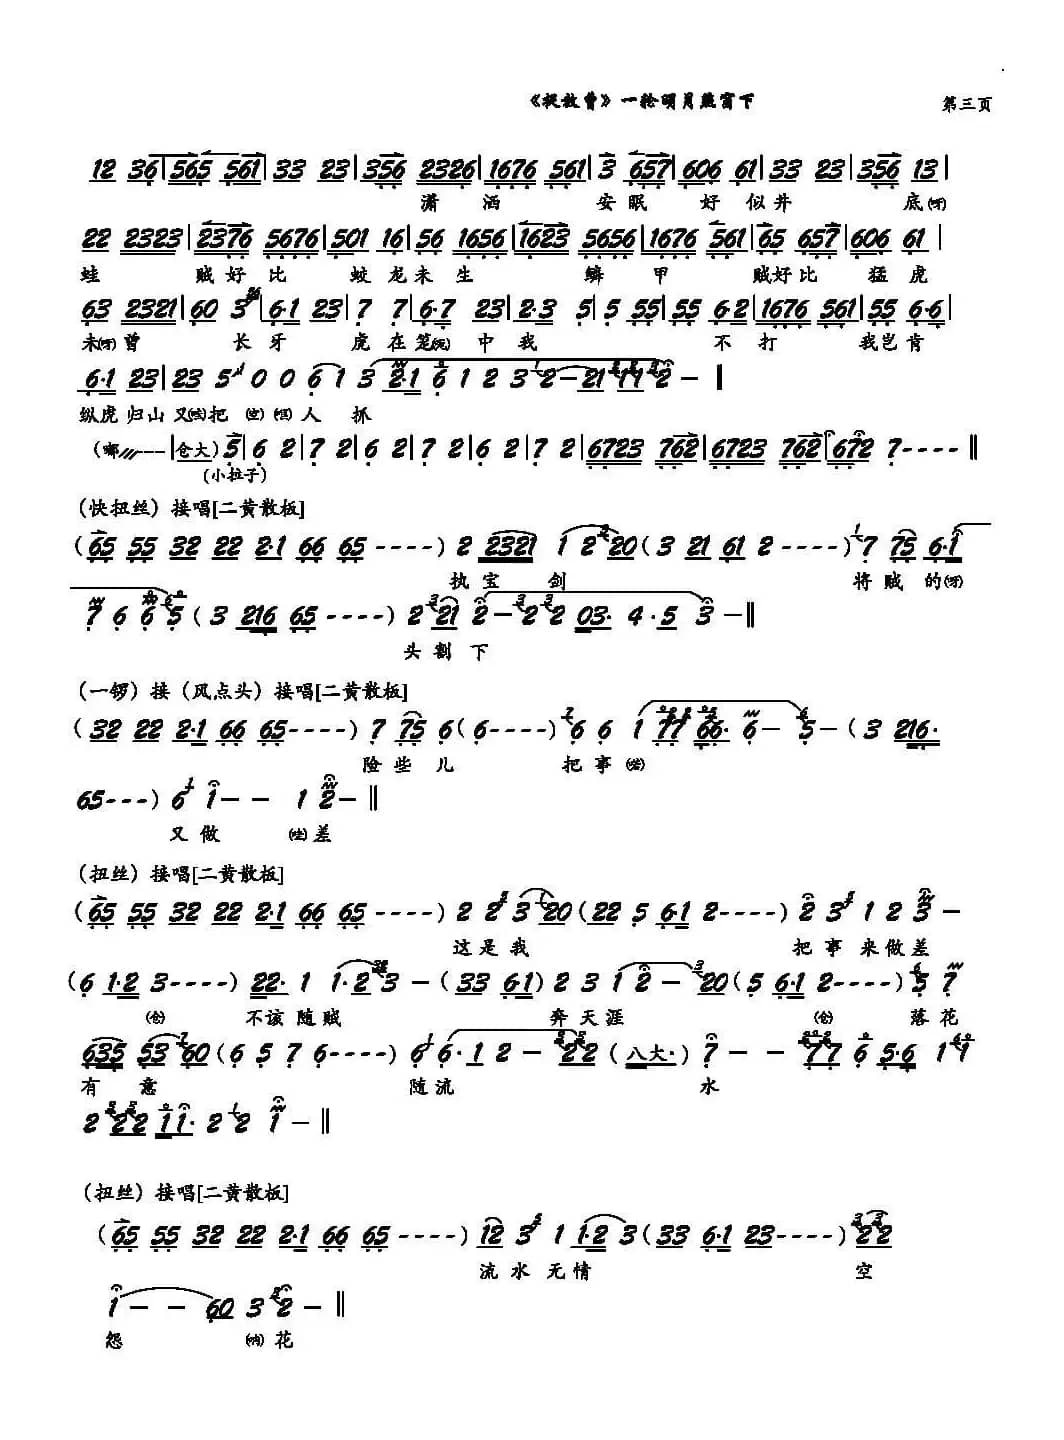 《捉放曹》一轮明月照窗下 第三页
12 36|565 561|33 23|356 2326|1676 561|3 657|606 61|33 23|356 13|
潇 洒 安 眠 好 似 井 底(呀)
22 2323|2376 5676|501 16|56 1656|1623 5656|1676 561|65 657|606 61|
蛙 贼 好 比 蛟 龙 未 生 鳞 甲 贼 好 比 猛 虎
63 2321|60 3 6·1 23|7 7|6·7 23|2·3 5|5 55|55 6·2|1676 561|55 6·6|
未(呀)曾 长 牙 虎 在 笼 中 我 不 打 我 岂 肯
6·1 23|23 5 0 0 6 1 3 2·1 6 1 2 3 2-21 11 2-‖
纵虎 归山 又 把 人 抓
(嘟---|仓大)5|6 2|7 2|6 2|7 2|6 2|7 2|6723 762|6723 762|672 7----‖
(小拉子)
(快扭丝)接唱[二黄散板]
(65 55 32 22 2·1 66 65----)2 2321 1 2 20(3 21 61 2----)7 75 6·1
执 宝 剑 将 贼 的(呀)
7 6 6 5(3 216 65----)2 21 2-2 2 03· 4·5 3-‖
头 割 下
(一锣)接(风点头)接唱[二黄散板]
(32 22 2·1 66 65----)7 75 6(6----)6 6 1 77 66· 6- 5-(3 216·
险 些 儿 把 事
65---)6 1-- 1 2-‖
又 做 差
(扭丝)接唱[二黄散板]
(65 55 32 22 2·1 66 65----)2 2 3 20(22 5 6·1 2----)2 3 1 2 3-
这 是 我 把 事 来 做 差
(6 1·2 3----)22· 1 1·2 3-(33 6·1)2 3 1 2-20(5 6·1 2----)5 7
(仓) 不 该 随 贼 奔 天 涯 (仓) 落 花
635 53 60(6 5 7 6----)6 6·1 2-22(八大·)7--77 6 5·6 1 1
有 意 随 流 水
2 22 11· 2 2 1-‖
(扭丝)接唱[二黄散板]
(65 55 32 22 2·1 66 65----)12 3 1 1·2 3(33 6·1 23----)22
流 水 无 情 空
1--60 3 2-‖
怨 花